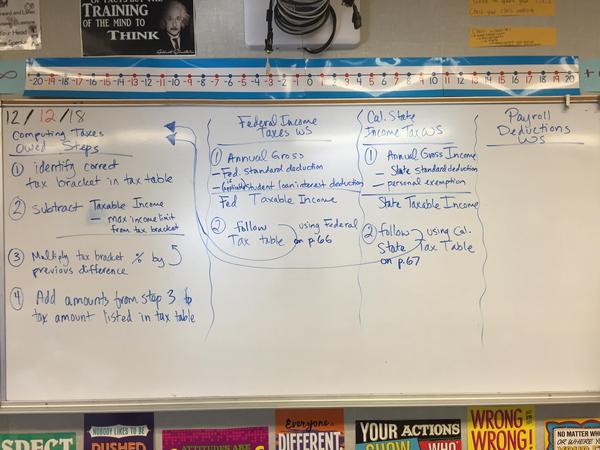 TRAINING
OF THE MIND TO
THINK
-20 -19 -18 -17 -16 -15 -14 -13 -12 -11 -10 -9 -8 -7 -6 -5 -4 -3 -2 -1 0 1 2 3 4 5 6 7 8 9 10 11 12 13 14 15 16 17 18 19 20
12/12/18
Computing Taxes
Owed Steps
① identify correct
tax bracket in tax table
② Subtract Taxable Income
- max income limit
from tax bracket
③ Multiply tax bracket % by
previous difference
④ Add amounts from step 3 to
tax amount listed in tax table
Federal Income
Taxes WS
① Annual Gross
- Fed. standard deduction
- (if applicable) student loan interest deduction
Fed Taxable Income
② Follow using Federal
Tax table on p.66
Cal. State
Income Tax WS
① Annual Gross Income
- State standard deduction
- personal exemption
State Taxable Income
② follow using Cal.
State Tax Table
on p.67
Payroll
Deductions
WS
NOBODY LIKES TO BE
RUSHED
ATTITUDES ARE
Everyone is
DIFFERENT.
YOUR ACTIONS
SHOW WHO
WRONG
WRONG!
NO MATTER WHO
OR WHERE YO